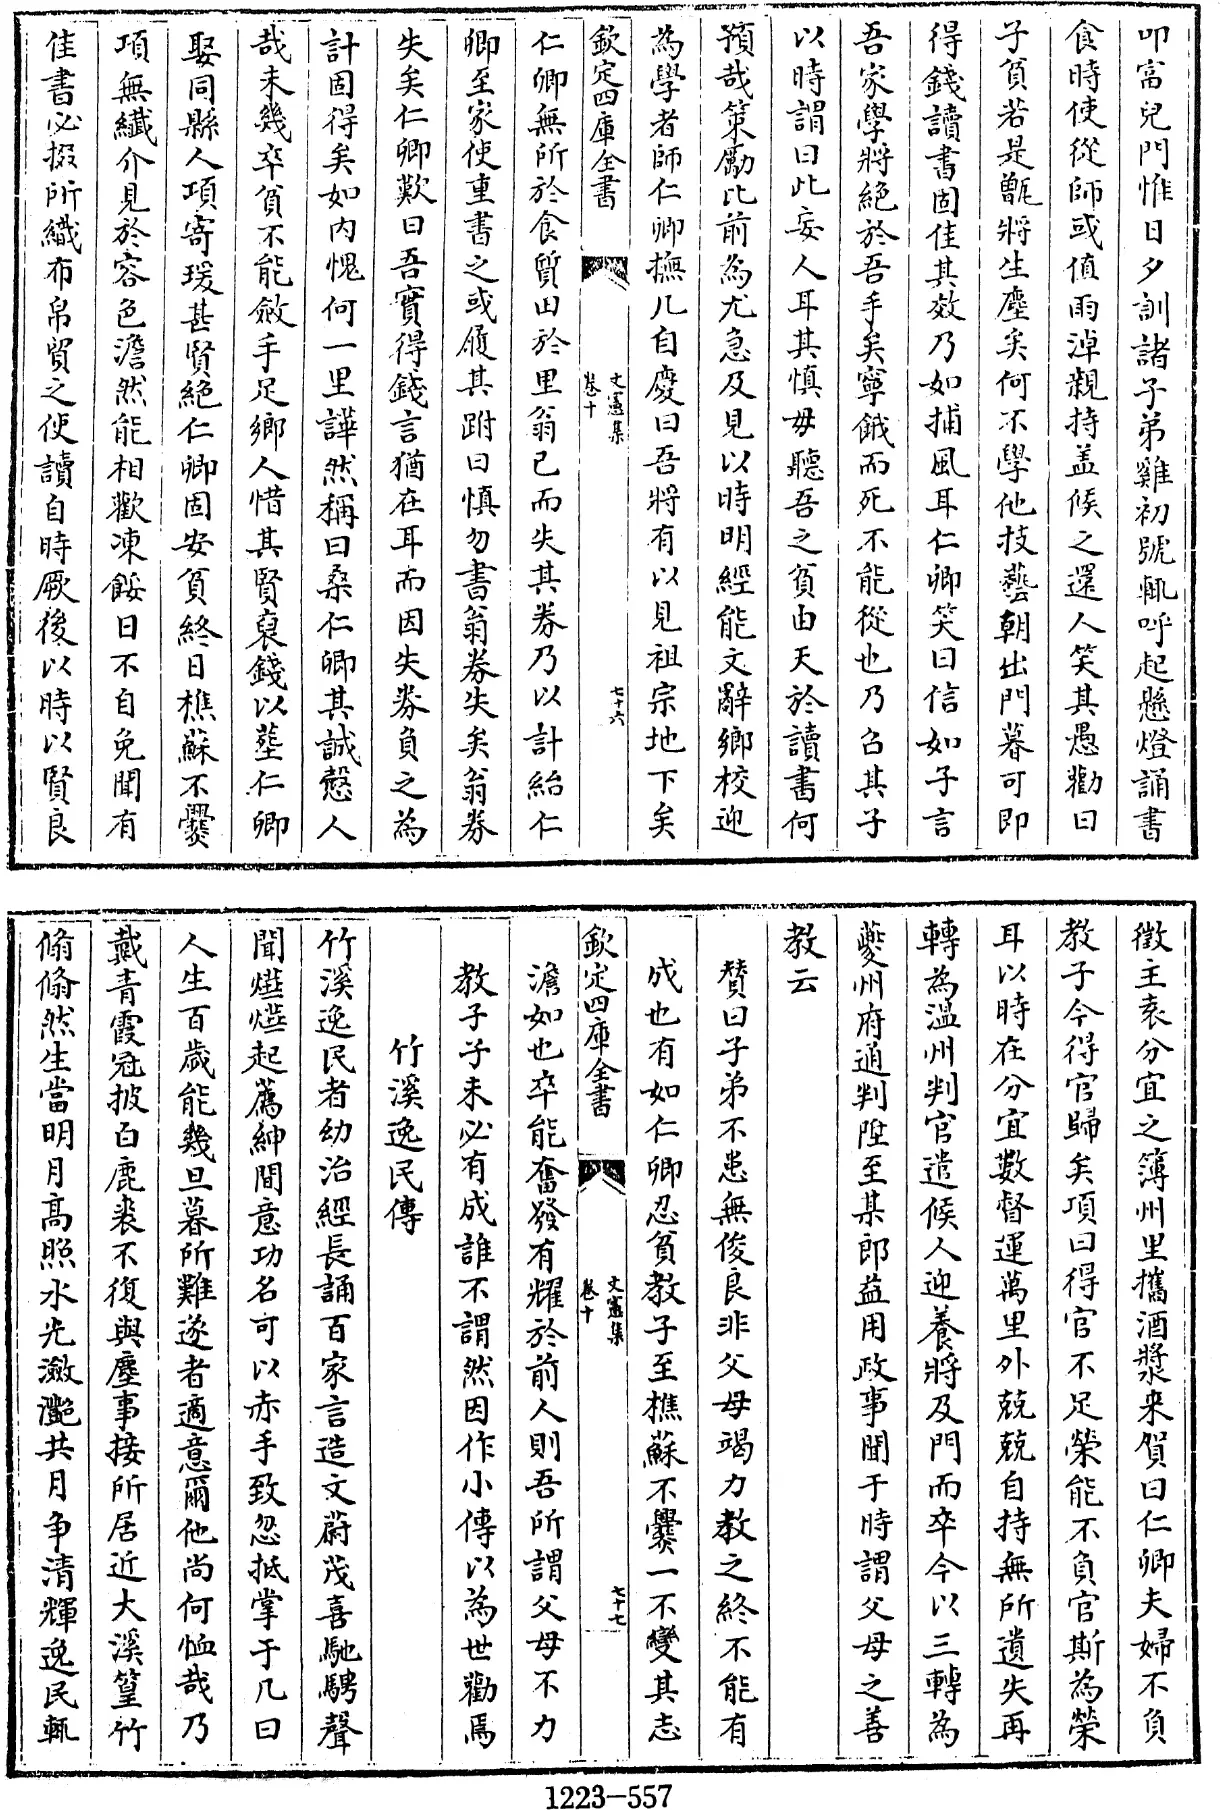 叩富兒門惟日夕訓諸子弟雞初號輒呼起懸燈誦書
食時使從師或值雨淖親持蓋候之還人笑其愚勸曰
子貧若是甑將生塵矣何不學他技藝朝出門暮可即
得錢讀書固佳其效乃如捕風耳仁卿笑曰信如子言
吾家學將絕於吾手矣寧餓而死不能從也乃召其子
以時謂曰此妄人耳其慎毋聽吾之貧由天於讀書何
預哉策勵比前為尤急及見以時明經能文辭鄉校迎
為學者師仁卿撫几自慶曰吾將有以見祖宗地下矣
欽定四庫全書
文憲集
卷十
七十六
仁卿無所於食質田於里翁已而失其券乃以計紿仁
卿至家使重書之或履其跗曰慎勿書翁券失矣翁券
失矣仁卿歎曰吾實得錢言猶在耳而因失券負之為
計固得矣如內愧何一里譁然稱曰桑仁卿其誠慤人
哉未幾卒貧不能斂手足鄉人惜其賢裒錢以塟仁卿
娶同縣人項寄瑗甚賢絕仁卿固安貧終日樵蘇不爨
項無纖介見於容色澹然能相歡凍餒日不自免聞有
佳書必掇所織布帛貿之使讀自時厥後以時以賢良
徵主袁分宜之簿州里攜酒漿來賀曰仁卿夫婦不負
教子今得官歸矣項曰得官不足榮能不負官斯為榮
耳以時在分宜數督運萬里外兢兢自持無所遺失再
轉為溫州判官遣候人迎養將及門而卒今以三轉為
夔州府通判陞至某郎益用政事聞于時謂父母之善
教云
贊曰子弟不患無俊良非父母竭力教之終不能有
成也有如仁卿忍貧教子至樵蘇不爨一不變其志
欽定四庫全書
文憲集
卷十
七十七
澹如也卒能奮發有耀於前人則吾所謂父母不力
教子子未必有成誰不謂然因作小傳以為世勸焉
竹溪逸民傳
竹溪逸民者幼治經長誦百家言造文蔚茂喜馳騁聲
聞燁燁起薦紳間意功名可以赤手致忽抵掌于几曰
人生百歲能幾旦暮所難遂者適意爾他尚何恤哉乃
戴青霞冠披白鹿裘不復與塵事接所居近大溪篁竹
翛翛然生當明月高照水光瀲灩共月争清輝逸民輒
1223-557